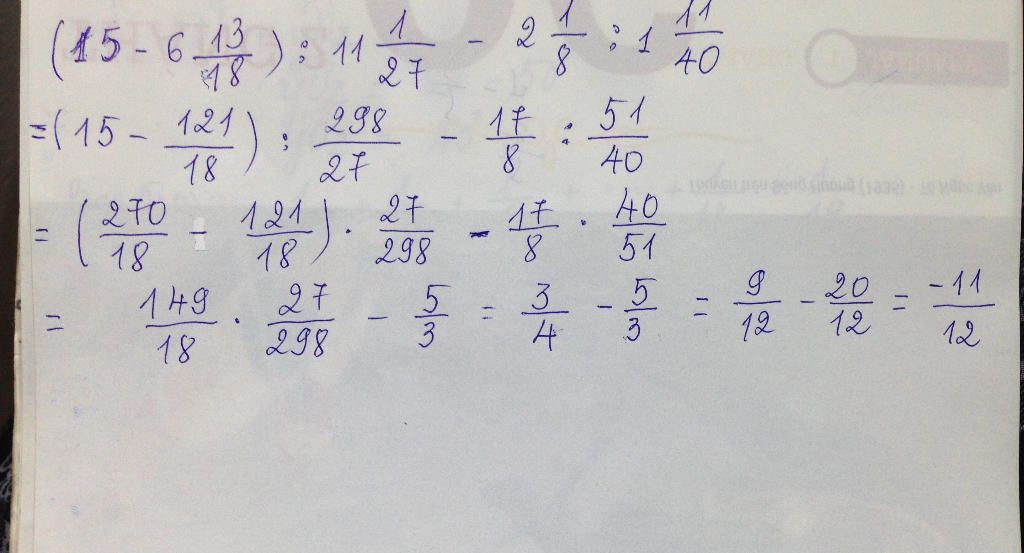 (15 - 6 13/18) : 11 1/27 - 2 1/8 : 1 11/40
= (15 - 121/18) : 298/27 - 17/8 : 51/40
= (270/18 - 121/18) . 27/298 - 17/8 . 40/51
= 149/18 . 27/298 - 5/3 = 3/4 - 5/3 = 9/12 - 20/12 = -11/12